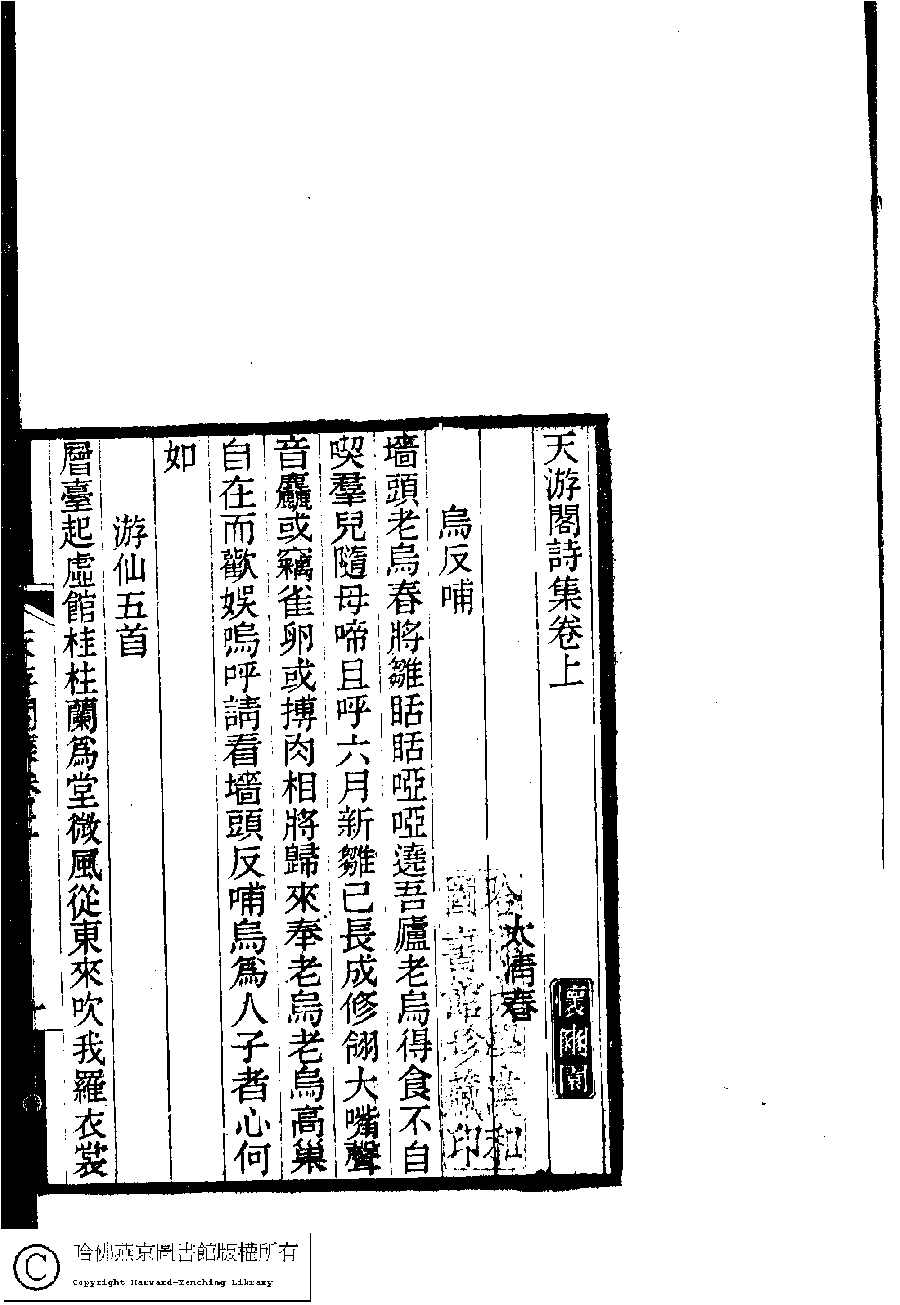 天游閣詩集卷上
懷豳閣
太清春
哈佛大學漢和
圖書館珍藏印
烏反哺
墻頭老烏春將雛睧睧啞啞遶吾廬老烏得食不自
喫羣兒隨母啼且呼六月新雛已長成修翎大嘴聲
音麤或竊雀卵或搏肉相將歸來奉老烏老烏高巢
自在而歡娛嗚呼請看墻頭反哺烏爲人子者心何
如
游仙五首
層臺起虛館桂柱蘭爲堂微風從東來吹我羅衣裳
哈佛燕京圖書館版權所有
Copyright Harvard-Yenching Library